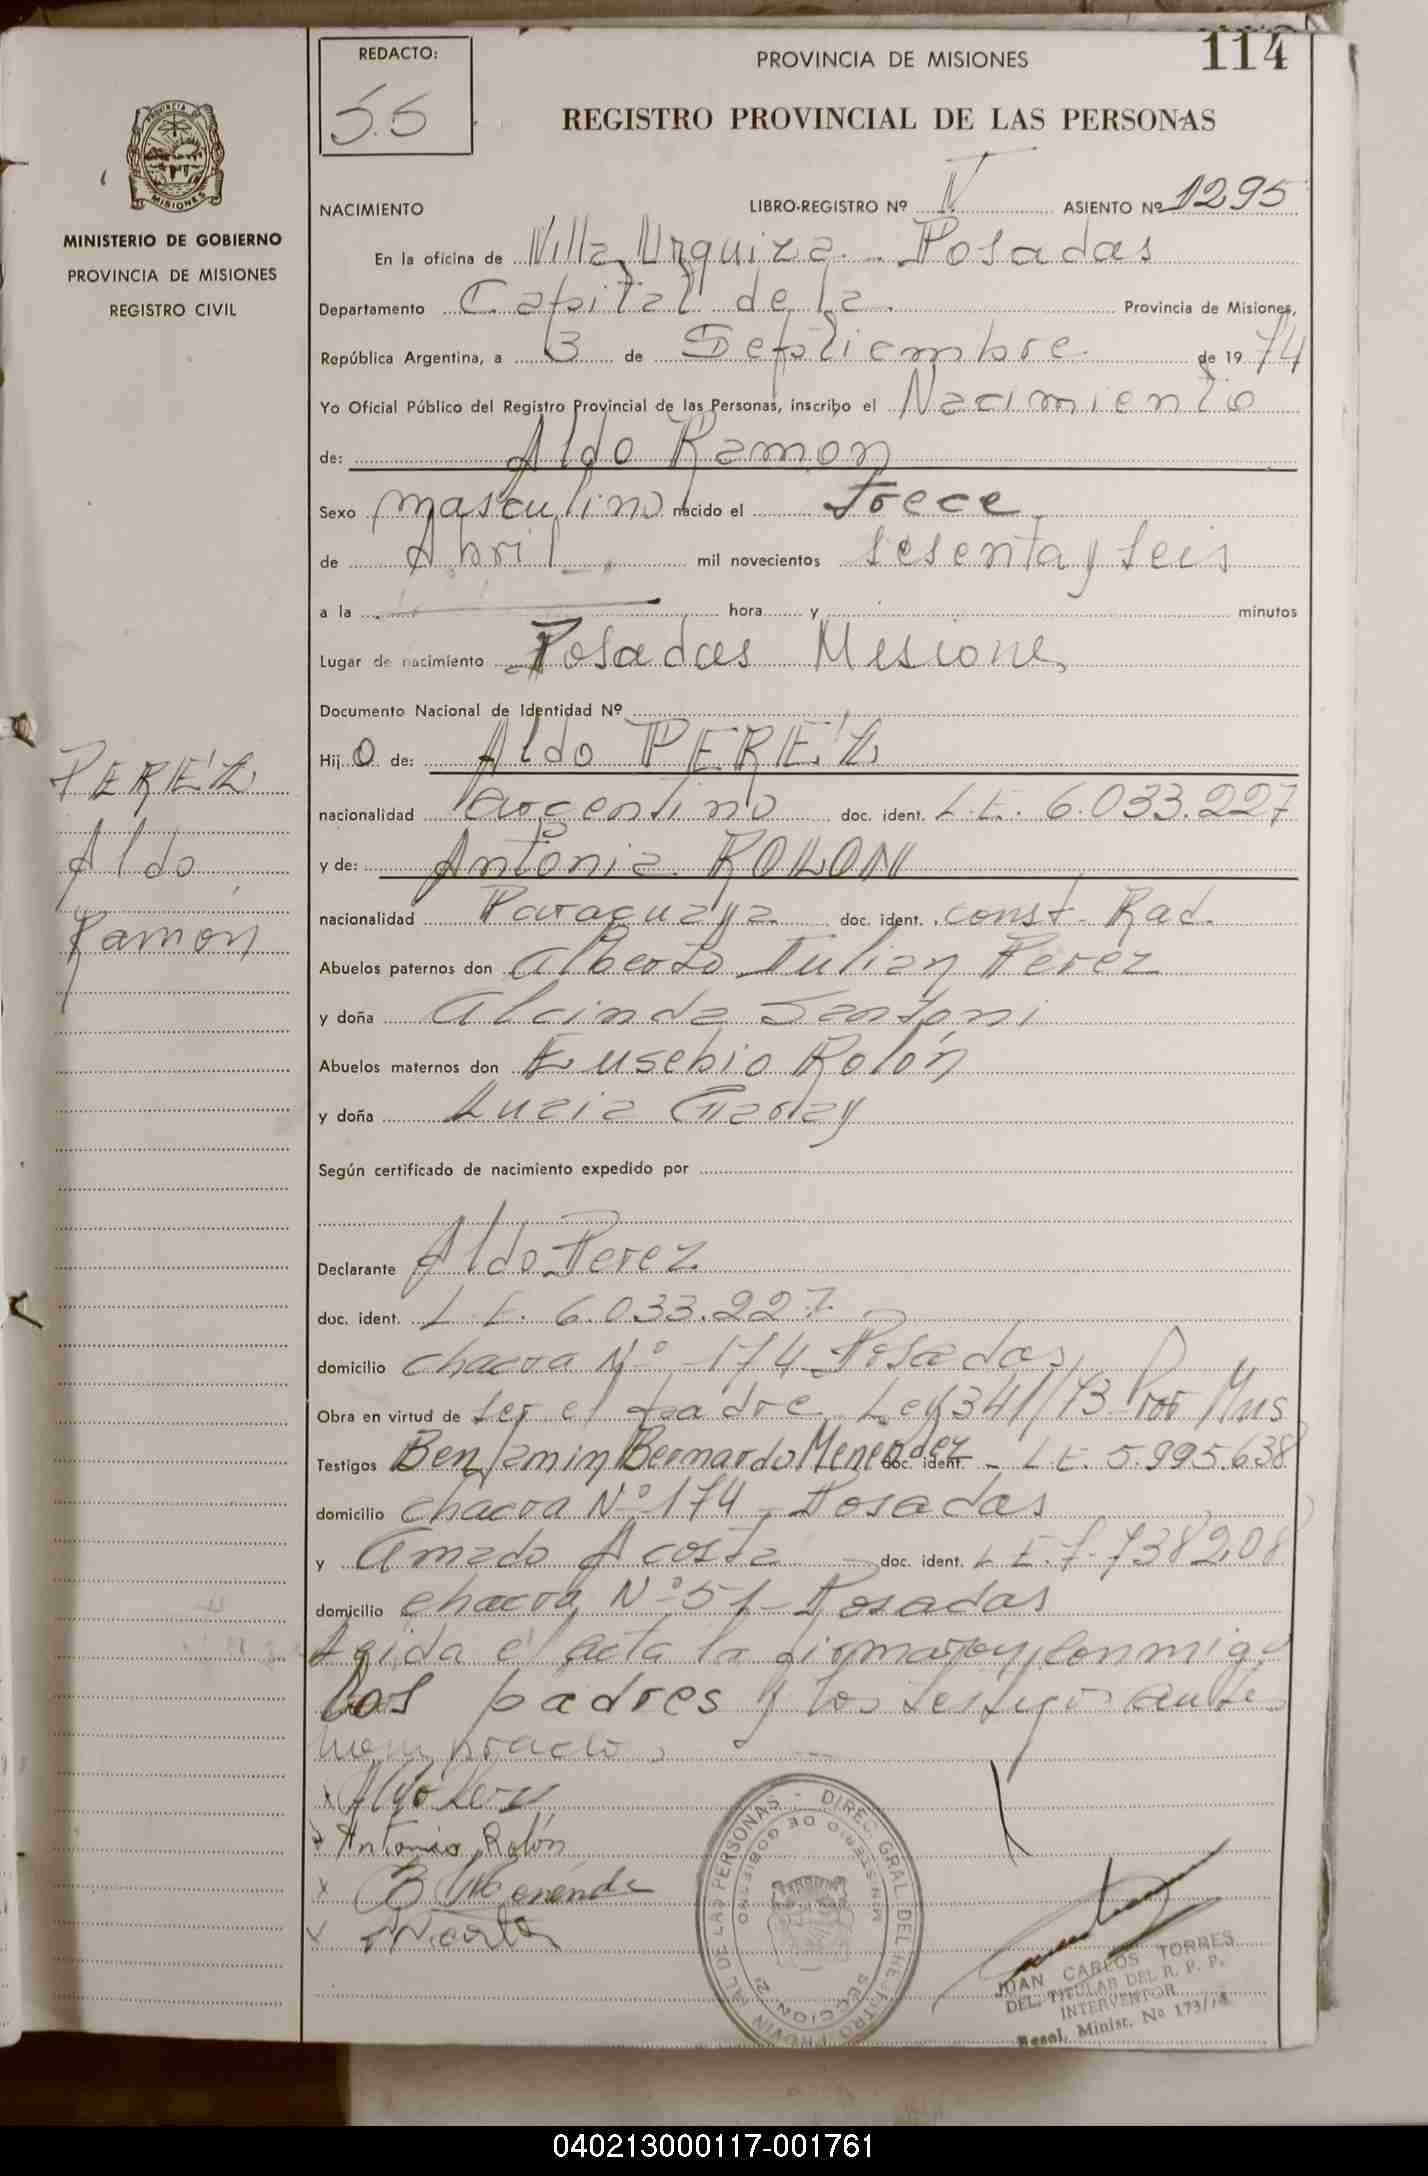 REDACTO:
S.S
PROVINCIA DE MISIONES
114
REGISTRO PROVINCIAL DE LAS PERSONAS
MISIONES
MINISTERIO DE GOBIERNO
PROVINCIA DE MISIONES
REGISTRO CIVIL
NACIMIENTO LIBRO-REGISTRO Nº V ASIENTO Nº 1295
En la oficina de Villa Urquiza - Posadas
Departamento Capital de la Provincia de Misiones,
República Argentina, a 3 de Septiembre de 1974
Yo Oficial Público del Registro Provincial de las Personas, inscribo el Nacimiento
de: Aldo Ramon
Sexo masculino nacido el trece
de Abril mil novecientos sesenta y seis
a la hora y minutos
Lugar de nacimiento Posadas Misiones
Documento Nacional de Identidad Nº
Hijo de: Aldo PERÉZ
nacionalidad argentino doc. ident. L.E. 6.033.227
y de: Antonia ROLON
nacionalidad Paraguaya doc. ident. const. Rad.
Abuelos paternos don Alberto Julian Perez
y doña Alcinda Santoni
Abuelos maternos don Eusebio Rolón
y doña Lucia Garay
Según certificado de nacimiento expedido por
Declarante Aldo Perez
doc. ident. L.E. 6.033.227
domicilio chacra Nº 174 Posadas
Obra en virtud de ser el padre Ley 341/73 Por
Testigos Benjamin Bernardo Menendez doc. ident. - L.E. 5.995.638
domicilio chacra Nº 174 - Posadas
y Amado Acosta doc. ident. L.E. 7.738208
domicilio chacra Nº 51 - Posadas
el acta la firmaron conmigo
los padres y los testigos antes
nombrado.
PERÉZ
Aldo
Ramón
x Aldo Perez
x Antonia Rolón
x B Menende
Acosta
DIREC. GRAL. DEL REGISTRO PROVINCIAL DE LAS PERSONAS -
MINISTERIO DE GOBIERNO
SECCION 2
JUAN CARLOS TORRES
DEL. TITULAR DEL R. P. P.
INTERVENTOR
Resol. Minist. Nº 173/74
040213000117-001761